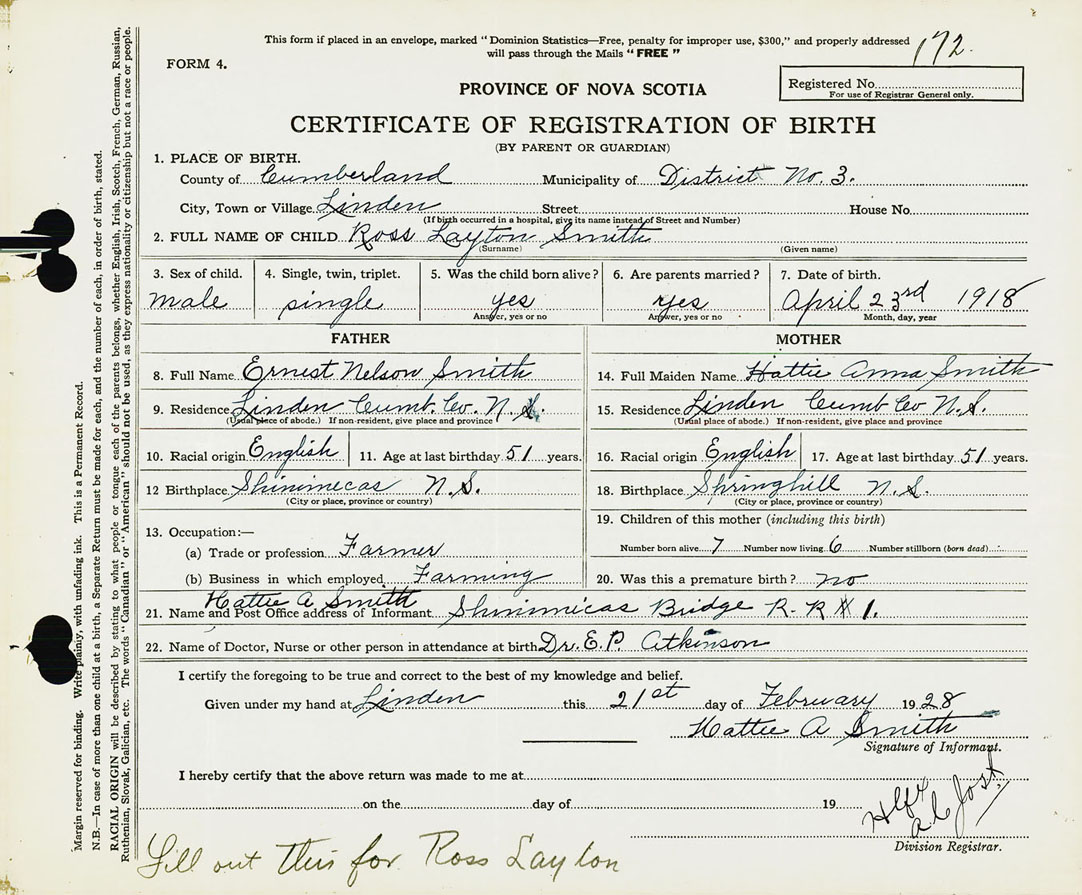 This form if placed in an envelope, marked "Dominion Statistics—Free, penalty for improper use, $300," and properly addressed
will pass through the Mails "FREE"
172.
FORM 4.
Registered No.
For use of Registrar General only.
PROVINCE OF NOVA SCOTIA
CERTIFICATE OF REGISTRATION OF BIRTH
(BY PARENT OR GUARDIAN)
1. PLACE OF BIRTH.
County of Cumberland Municipality of District No. 3.
City, Town or Village Linden Street House No.
(If birth occurred in a hospital, give its name instead of Street and Number)
2. FULL NAME OF CHILD Ross Layton Smith
(Surname) (Given name)
3. Sex of child. 4. Single, twin, triplet. 5. Was the child born alive? 6. Are parents married? 7. Date of birth.
male single yes yes April 23rd 1918
Answer, yes or no Answer, yes or no Month, day, year
FATHER MOTHER
8. Full Name Ernest Nelson Smith 14. Full Maiden Name Hattie Anna Smith
9. Residence Linden Cumb. Co. N.S. 15. Residence Linden Cumb Co N.S.
(Usual place of abode.) If non-resident, give place and province (Usual place of abode.) If non-resident, give place and province
10. Racial origin English 11. Age at last birthday 51 years. 16. Racial origin English 17. Age at last birthday 51 years.
12 Birthplace Shinimecas N.S. 18. Birthplace Springhill N.S.
(City or place, province or country) (City or place, province or country)
13. Occupation:— 19. Children of this mother (including this birth)
(a) Trade or profession Farmer Number born alive 7 Number now living 6 Number stillborn (born dead)
(b) Business in which employed Farming 20. Was this a premature birth? no
Hattie A Smith
21. Name and Post Office address of Informant Shinimicas Bridge R.R # 1.
22. Name of Doctor, Nurse or other person in attendance at birth Dr. E.P. Atkinson
I certify the foregoing to be true and correct to the best of my knowledge and belief.
Given under my hand at Linden this 21st day of February 1928
Hattie A Smith
Signature of Informant.
I hereby certify that the above return was made to me at
on the day of 19
Hlfx
A C Jost
Division Registrar.
Fill out this for Ross Layton
Margin reserved for binding. Write plainly, with unfading ink. This is a Permanent Record.
N.B.—In case of more than one child at a birth, a Separate Return must be made for each, and the number of each, in order of birth, stated.
RACIAL ORIGIN will be described by stating to what people or tongue each of the parents belongs, whether English, Irish, Scotch, French, German, Russian,
Ruthenian, Slovak, Galician, etc. The words "Canadian" or "American" should not be used, as they express nationality or citizenship but not a race or people.